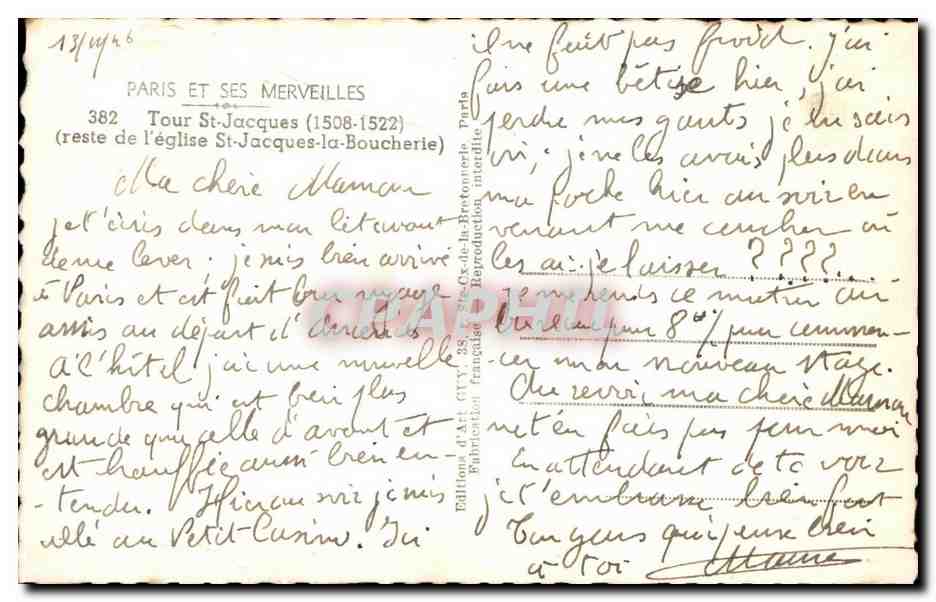 13/11/46
PARIS ET SES MERVEILLES
382 Tour St-Jacques (1508-1522)
(reste de l'église St-Jacques-la-Boucherie)
Ma chère Maman
je t'écris dans mon lit avant
de me lever. je suis bien arrivé
à Paris et ait fait bon voyage
assis au départ d'
A l'hôtel j'ai une nouvelle
chambre qui est bien plus
grande que celle d'avant et
est chauffée aussi bien en-
tendu. Hier au soir je suis
allé au Petit Casino. Ici
Editions d'Art GUY, 38, r. Ste-Cx-de-la-Bretonnerie, Paris
Fabrication française Reproduction interdite
il ne fait pas froid. j'ai
fais une bêtise hier, j'ai
perdre mes gants je ne sais
où, je ne les avais plus dans
ma poche hier au soir en
venant me coucher où
les ai-je laisser ????...
je me rends ce matin au
bureau pour 8h ½ pour commen-
cer mon nouveau stage.
Au revoir ma chère Maman
ne t'en fais pas pour moi
En attendant de te voir
je t'embrasse bien fort
Ton gars qui pense bien
à toi
CPAPHIL